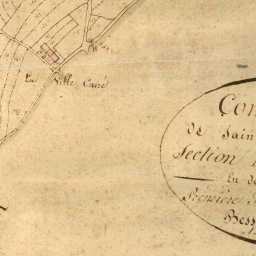 La Ville Carré
Con
de Sain
Section
Premiere
Bess